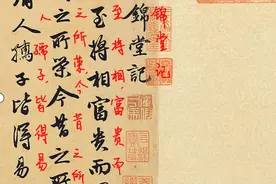 錦堂記
錦堂記
至將相,富貴而
至將相富貴而
之所榮,今昔之所
之所榮今昔之所
人孺子,皆得易
人孺子皆得易